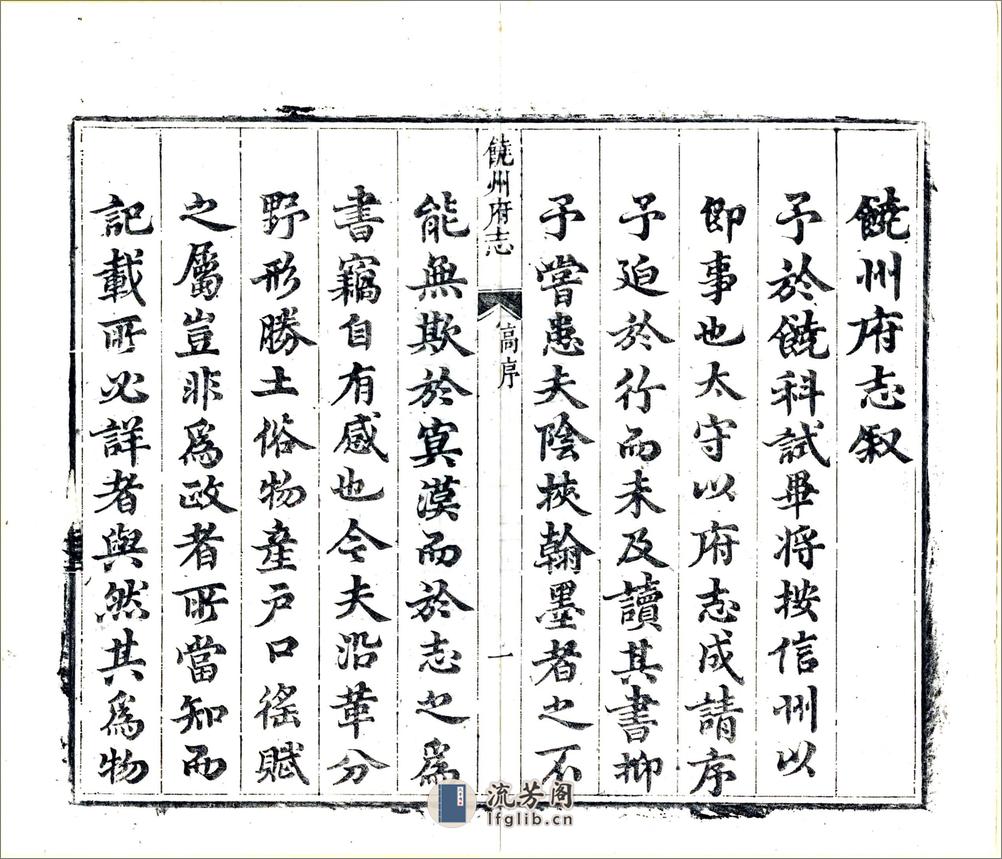 饒州府志叙
予於饒科試畢將按信州以
即事也太守以府志成請序
予迫於行而未及讀其書抑
予嘗患夫陰挾翰墨者之不
饒州府志
高序
一
能無欺於寞漠而於志之為
書竊自有感也今夫沿革分
野形勝土俗物產戶口徭賦
之屬豈非為政者所當知而
記載所必詳者與然其為物
流芳阁
lfglib.cn